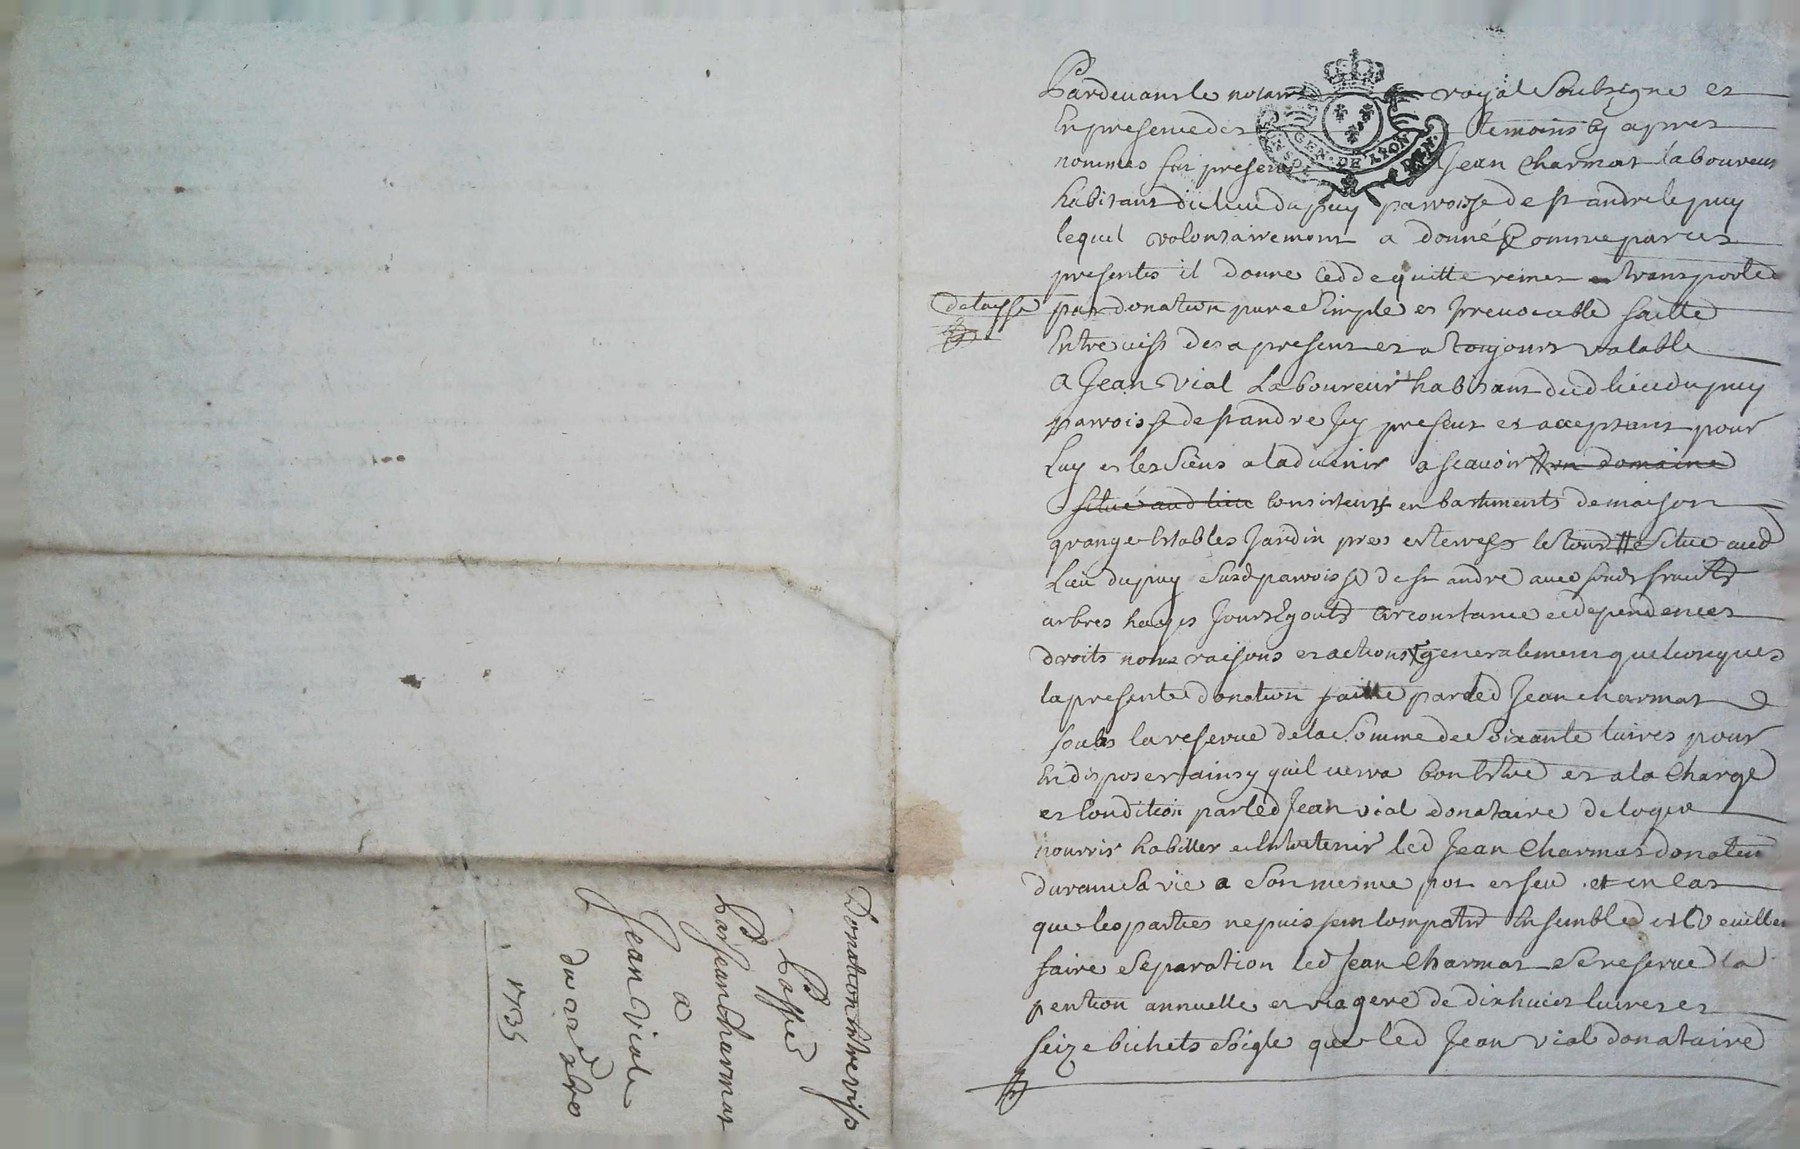 Pardevant le notaire royal Soubsigne et
En presence des temoins cy apres
nommes fut present Jean Charmat laboureur
habitant du lieu du puy parroisse de st andre le puy
lequel volontairement a donné comme par ces
presentes il donne cedde quitte remet transporte
delaisse
par donation pure simple et Irrevocable faitte
Entre vifs des a present et a toujours valable
A Jean Vial Laboureur habitant dud lieu du puy
parroisse de st andre Icy present et acceptant pour
Luy et les siens a ladvenir a scavoir un domaine
situé aud lieu consistent en bastiments de maison
grange Estables Jardin pres et terres le tout situe aud
Lieu du puy susd parroisse de st andre avec fonds fruits
arbres hayes Jours Egouts circonstance et dependences
droits noms raisons et actions generalement quelconques
la presente donation faitte par led Jean charmat
soubs la reserve de la somme de soixante livres pour
En disposer ainsy quil verra bon Estre et a la Charge
et Condition par led Jean vial donataire de loger
nourrir habiller et Entretenir led Jean Charmat donateur
durant sa vie a son mesme pot et feu et en cas
que les parties ne puissent compatir Ensemble et veuillent
faire separation led Jean Charmat se reserve la
pention annuelle et viagere de dix huict livres et
seize bichets soigle que led Jean vial donataire
Donation Entre vifs
Passé
Par Jean Charmat
a
Jean Viale
du 22e xbre
1735
GEN. DE LYON